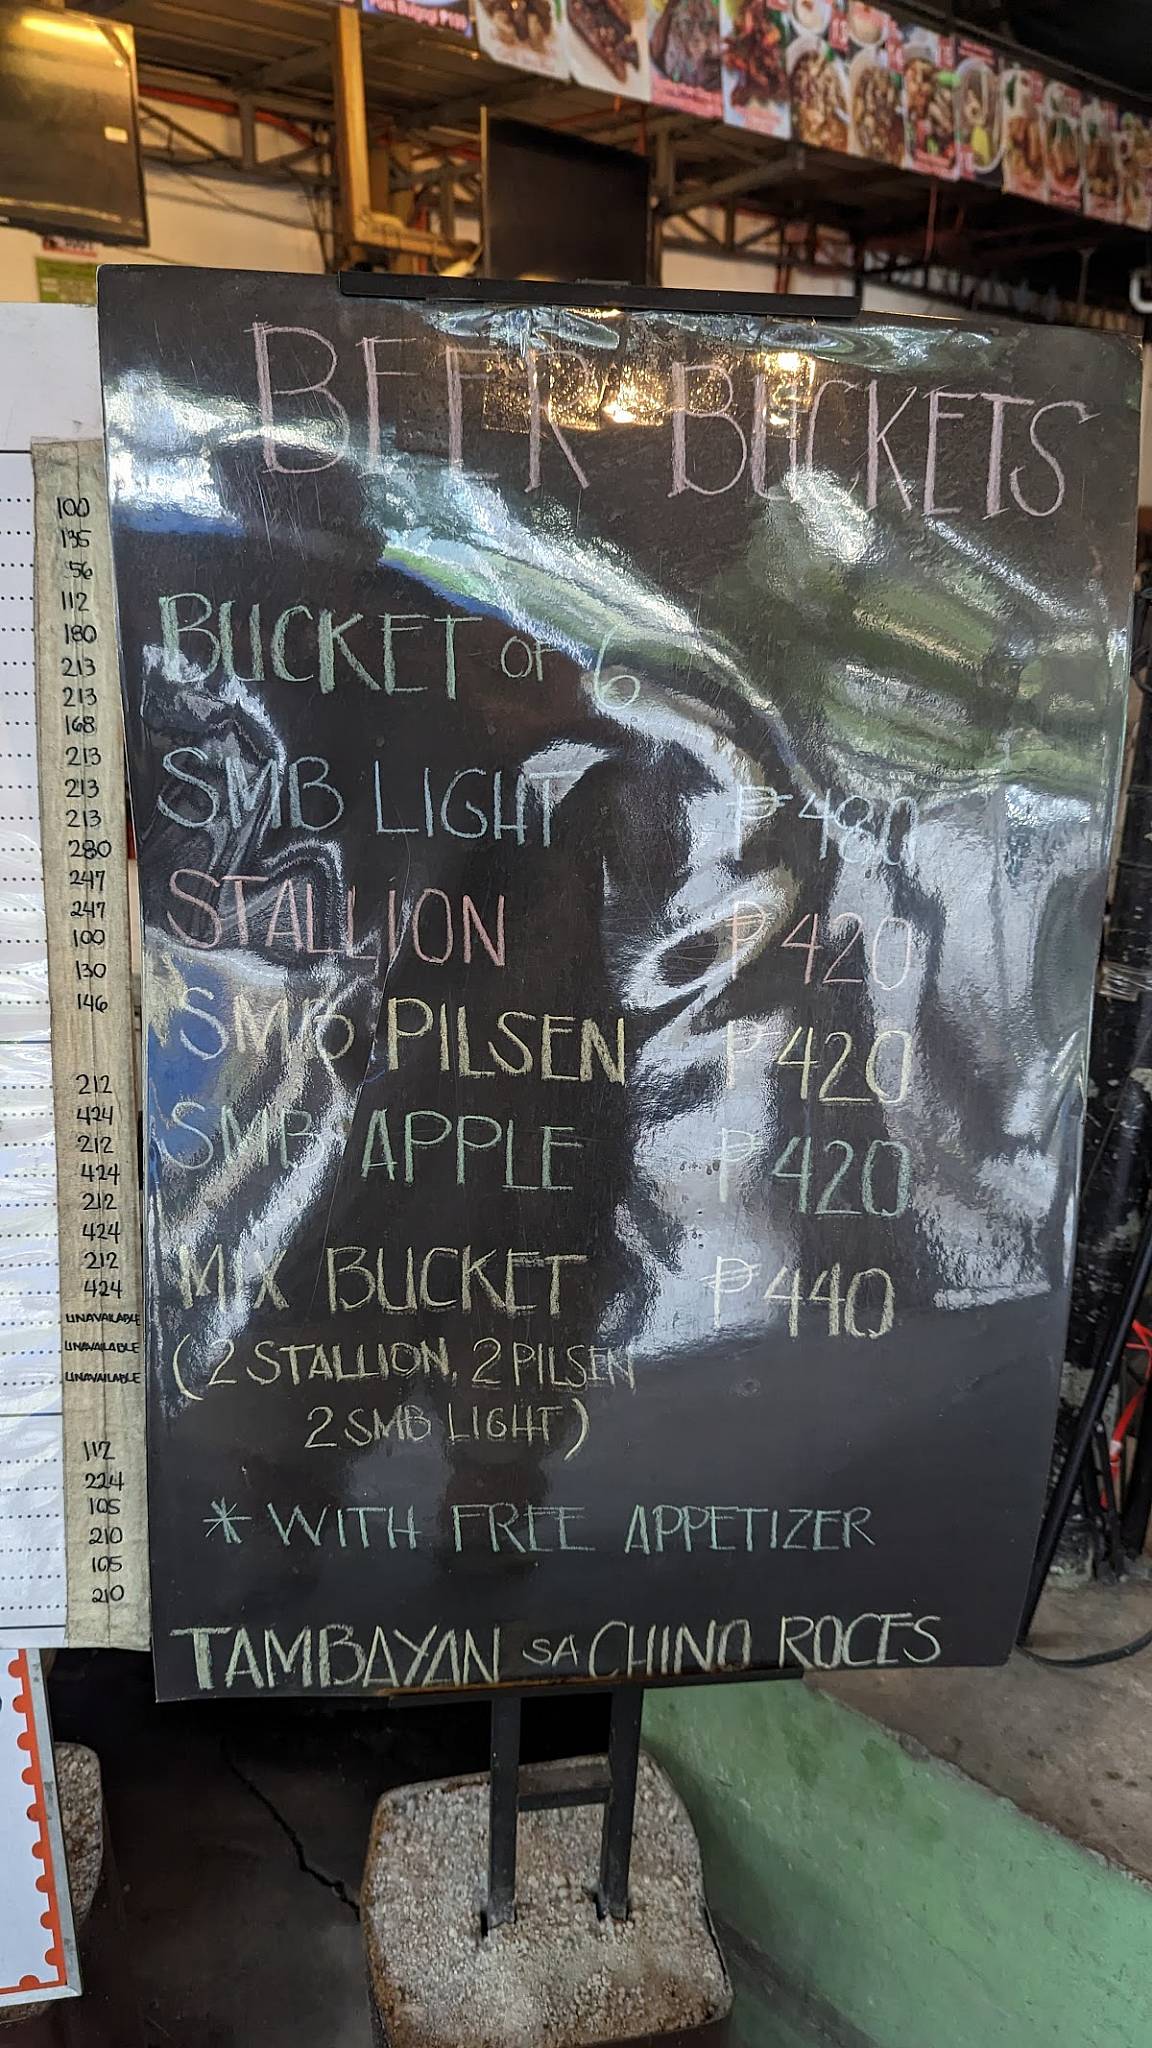 BEER BUCKETS
BUCKET OF 6
SMB LIGHT ₱480
STALLION ₱420
SMB PILSEN ₱420
SMB APPLE ₱420
MIX BUCKET ₱440
(2 STALLION, 2 PILSEN
2 SMB LIGHT)
* WITH FREE APPETIZER
TAMBAYAN SA CHINO ROCES
100
135
56
112
180
213
213
168
213
213
213
280
247
247
100
130
146
212
424
212
424
212
424
212
424
UNAVAILABLE
UNAVAILABLE
UNAVAILABLE
112
224
105
210
105
210